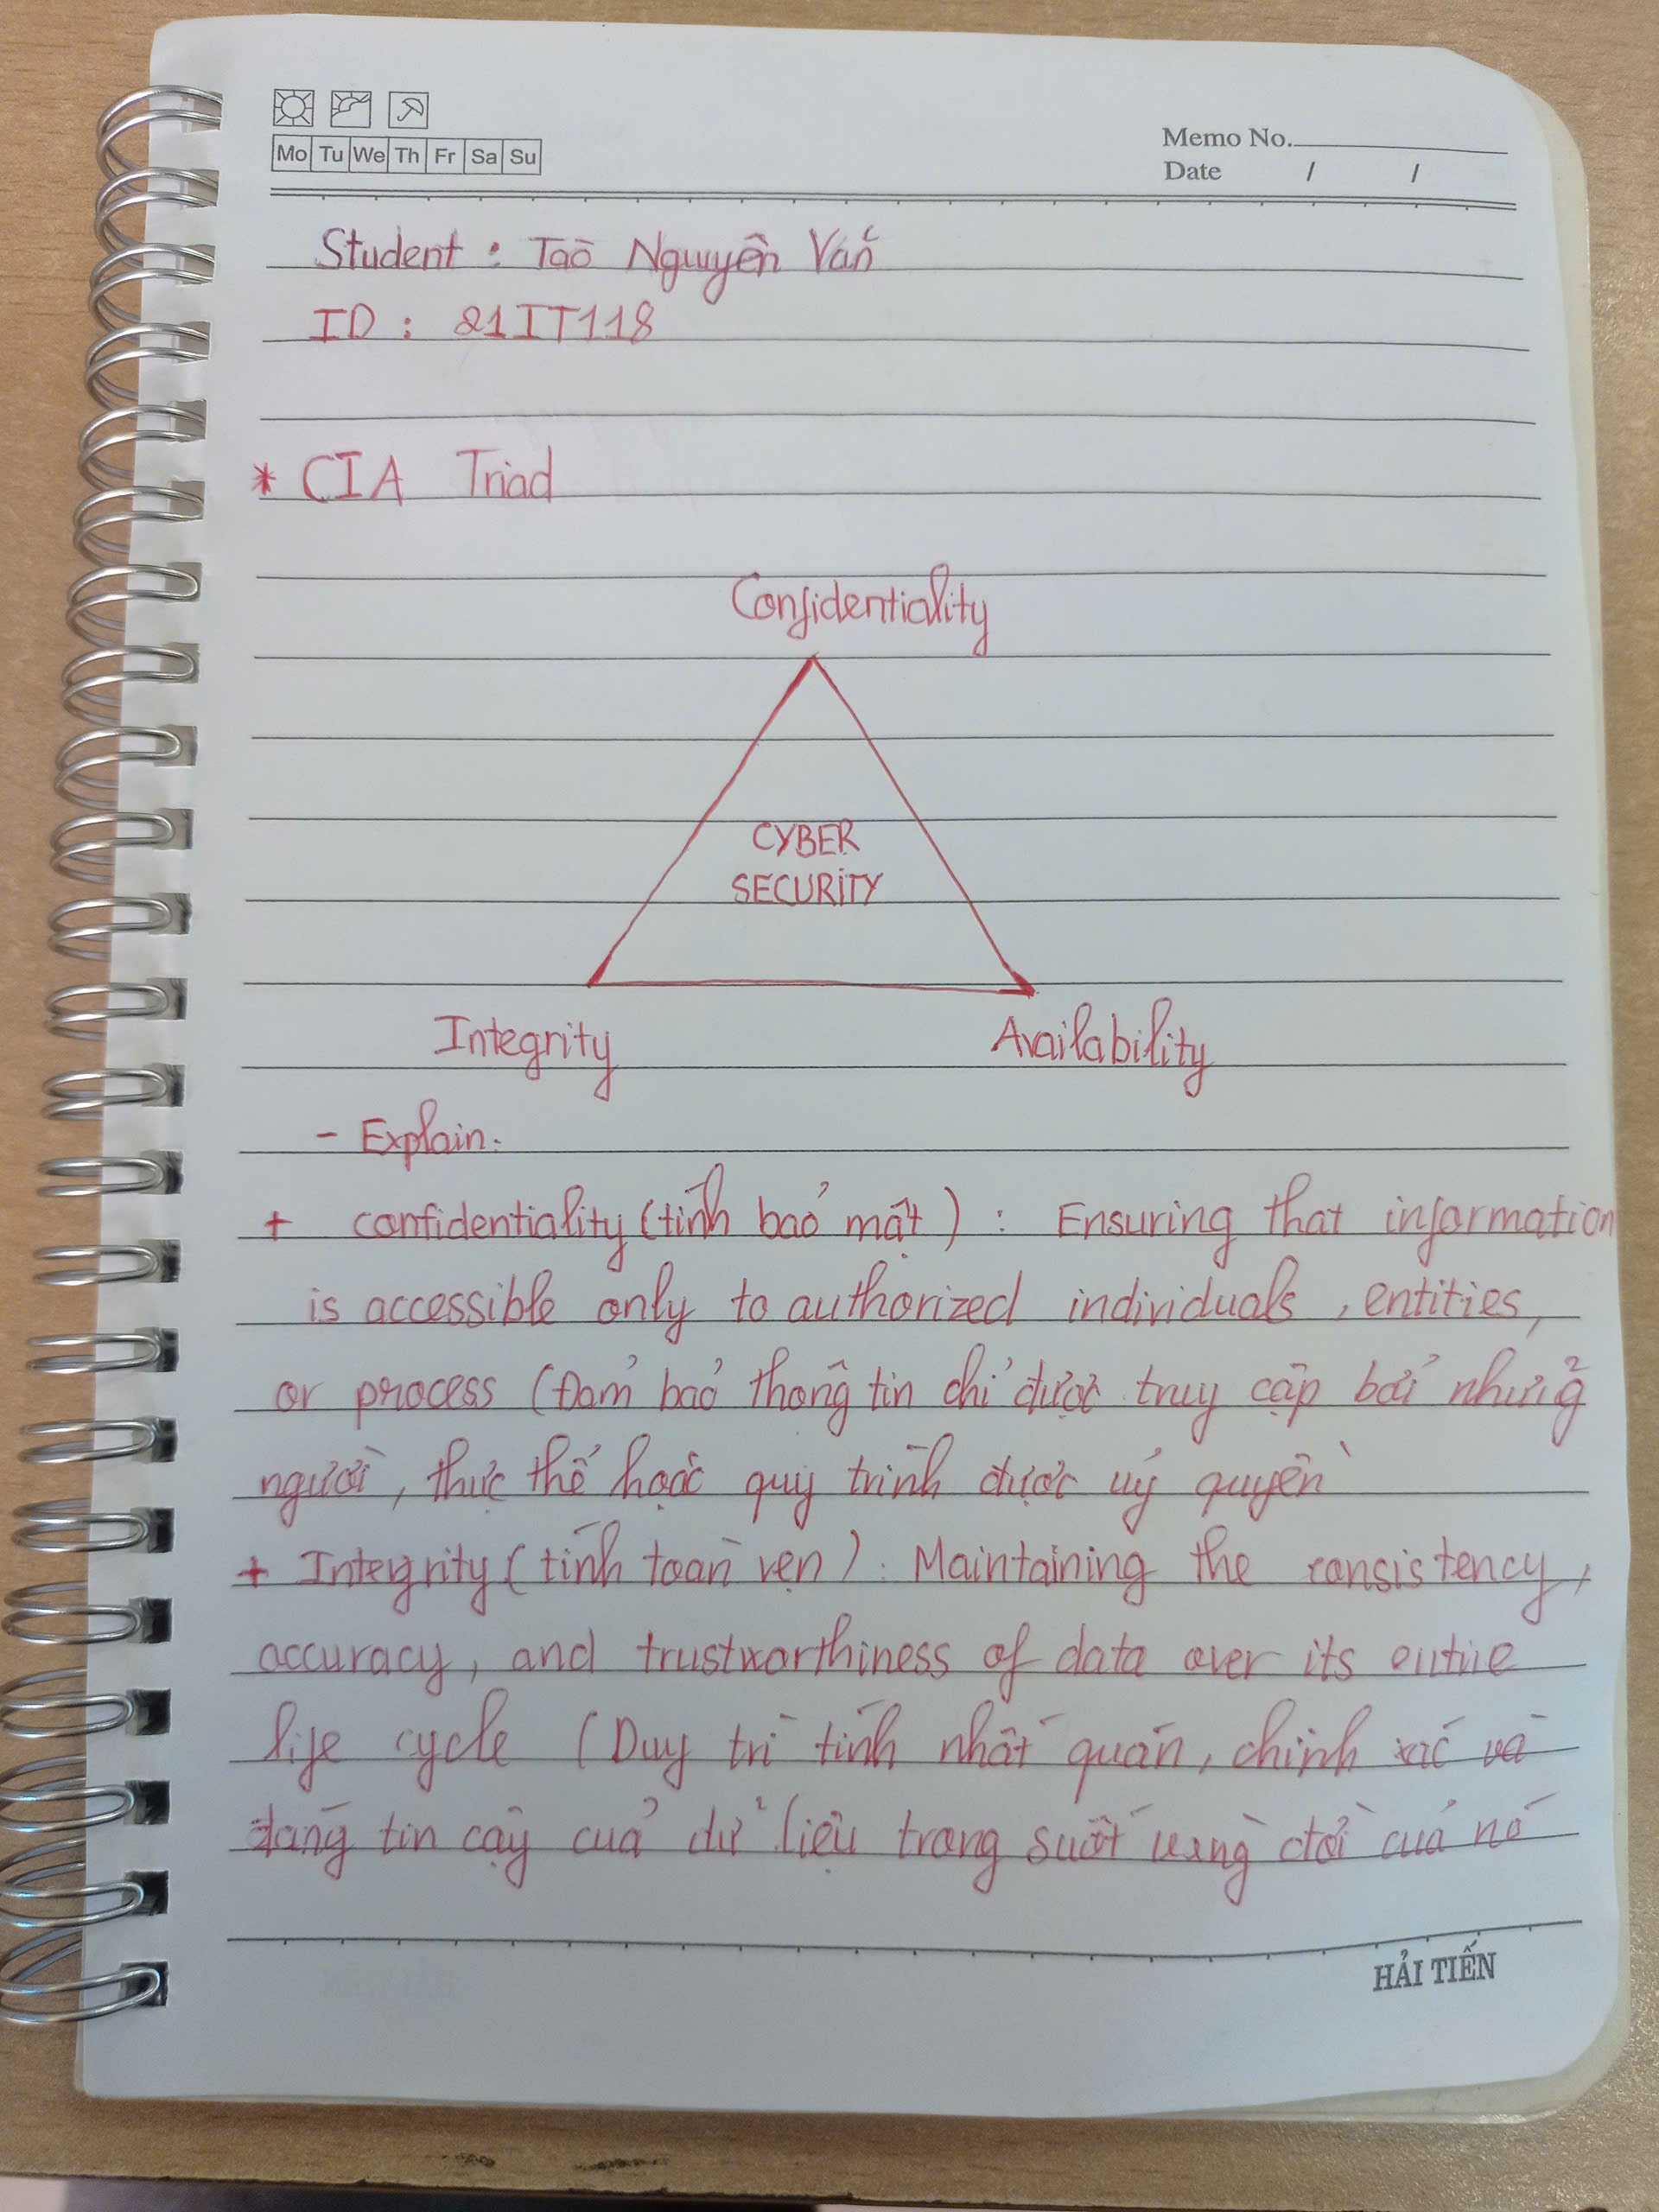 Mo Tu We Th Fr Sa Su
Memo No.
Date / /
Student : Taò Nguyên Vắn
ID : 21IT118
* CIA Triad
Confidentiality
CYBER
SECURITY
Integrity
Availability
- Explain:
+ confidentiality (tính bảo mật) : Ensuring that information
is accessible only to authorized individuals, entities,
or process (Đảm bảo thông tin chỉ được truy cập bởi những
người, thực thể hoặc quy trình được uỷ quyền
+ Integrity (tính toàn vẹn) : Maintaining the consistency,
accuracy, and trustworthiness of data over its entire
life cycle (Duy trì tính nhất quán, chính xác và
đáng tin cậy của dữ liệu trong suốt vòng đời của nó
HẢI TIẾN